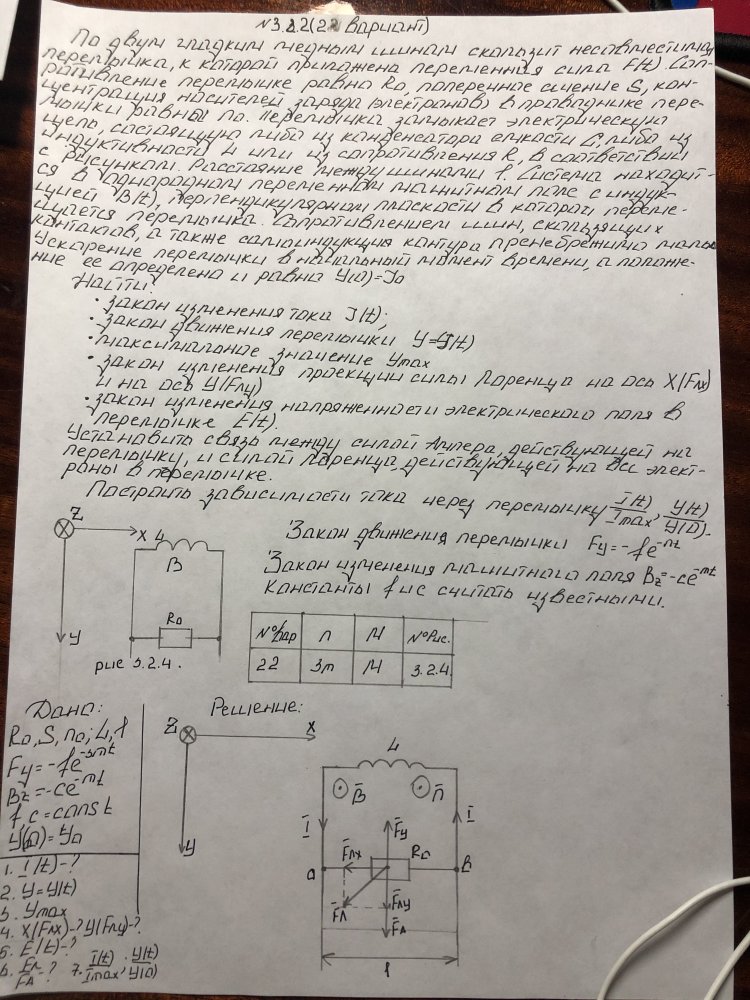 №3.2.2(22 вариант)
По двум гладким медным шинам скользит
перемычка, к которой приложена переменная сила F(t). Соп-
ротивление перемычке равна R₀, поперечное сечение S, кон-
центрация носителей заряда (электронов) в проводнике пере-
мычки равны n₀. Перемычка замыкает электрическую
цепь, состоящую либо из конденсатора емкости C, либо из
индуктивности L или из сопротивления R, в соответствии
с рисунком. Расстояние между шинами l. Система находит-
ся в однородном переменном магнитном поле с индук-
цией B(t), перпендикулярном плоскости в которой переме-
щается перемычка. Сопротивлением шин, скользящих
контактов, а также самоиндукция контура пренебрежимо малы
Ускорение перемычки в начальный момент времени, а положе-
ние ее определена и равна y(0)=y₀
Найти:
• закон изменения тока I(t);
• закон движения перемычки y=y(t)
• максимальное значение ymax
• закон изменения проекции силы Лоренца на ось X(Fлx)
и на ось y(Fлy)
• закон изменения напряженности электрического поля в
перемычке E(t).
Установить связь между силой Ампера, действующей на
перемычку, и силой Лоренца, действующей на все элект-
роны в перемычке.
Построить зависимости тока через перемычку I(t)/Imax, y(t)/y(0).
Закон движения перемычки Fy=-fe^-nt
Закон изменения магнитного поля Bz=-ce^-mt
Константы f и c считать известными.
Z
X
L
B
R₀
y
рис 3.2.4.
№Вар n M №Рис.
22 3m M 3.2.4.
Дано:
R₀, S, n₀; L, l
Fy=-fe^-3mt
Bz=-ce^-mt
f c=const
y(0)=y₀
1. I(t)-?
2. y=y(t)
3. ymax
4. X(Fлx)-? y(Fлy)-?
5. E(t)-?
6. Fл/FA-? 7. I(t)/Imax; y(t)/y(0)
Решение:
Z
X
y
L
B n
I I
Fy
Fлx R₀
a b
Fл Fлy
FA
l